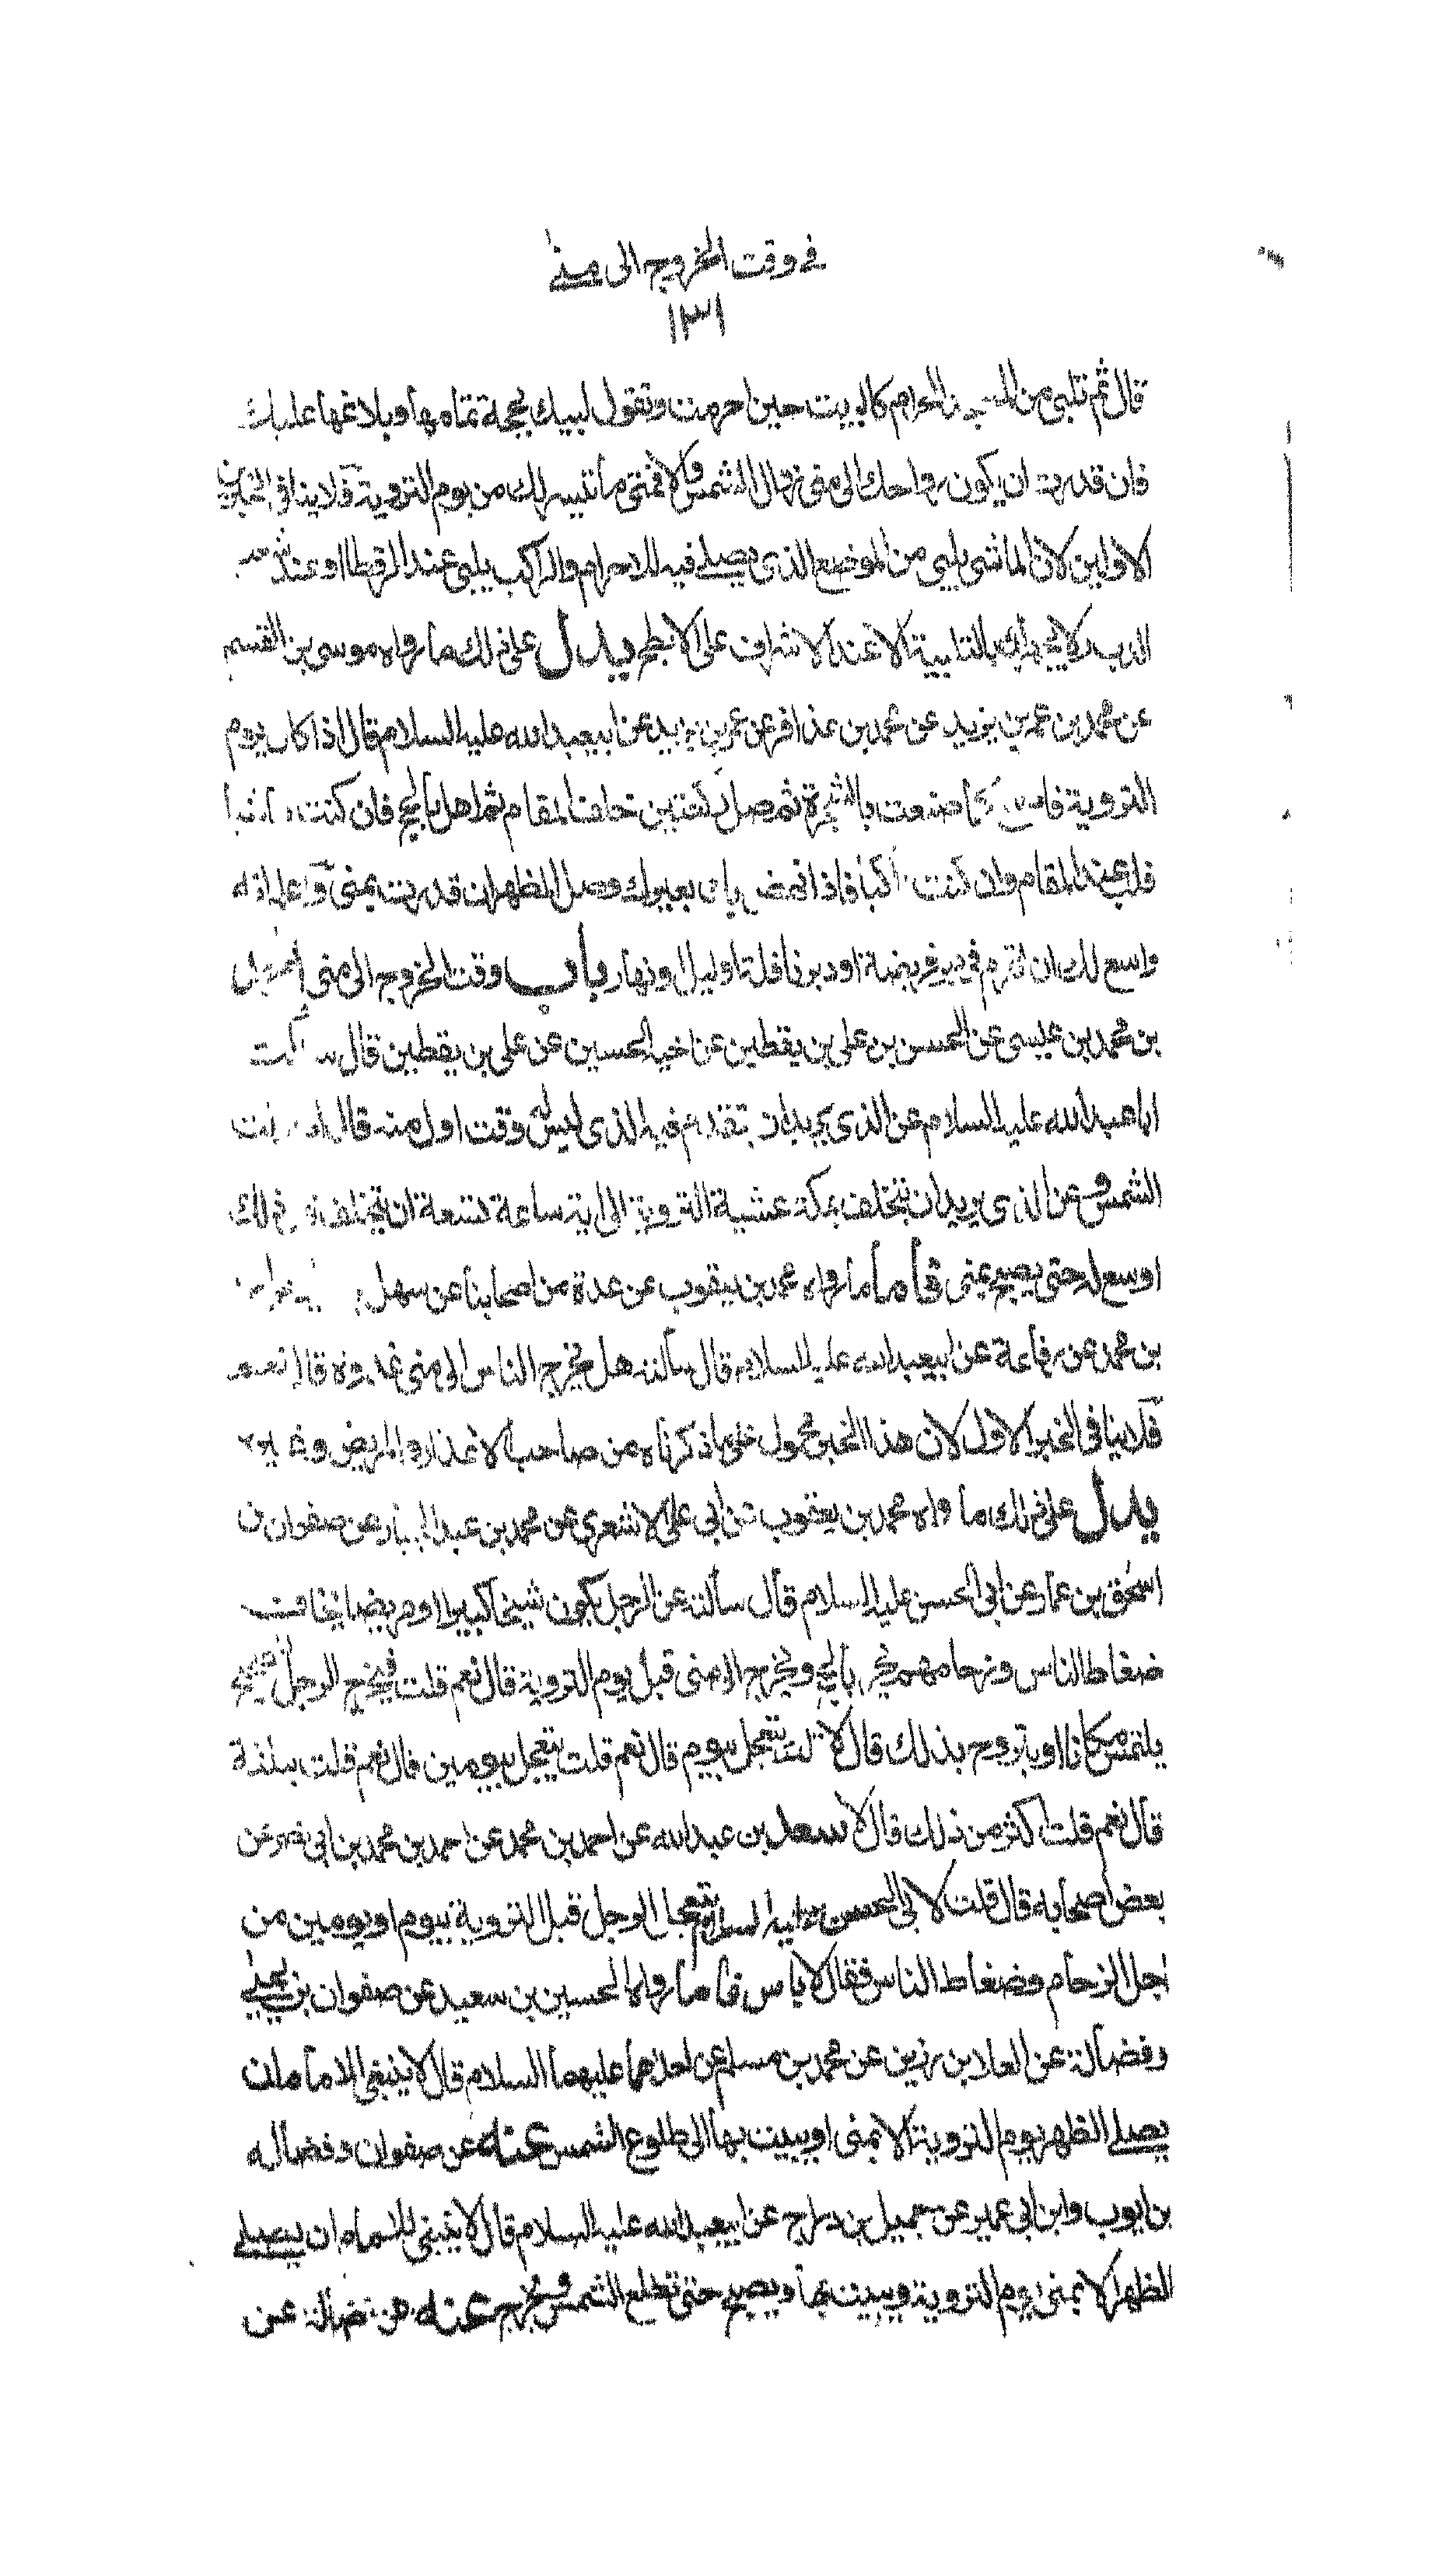 في وقت الخروج الى منى
١٣١
قال ثم تلبى من المسجد الحرام كما لبيت حين احرمت وتقول لبيك بحجة تمامها وبلاغها عليك
فان قدرت ان يكون رواحك الى منى زوال الشمس والا فمتى ما تيسر لك من يوم التروية فلا ينافي الخبرين
الاولين لان الماشى يلبى من الموضع الذى يصلى فيه للاحرام والراكب يلبى عند الرقطا او عند شعب
الدب ولا يجهران بالتلبية الا عند الاشراف على الابطح يدل على ذلك ما رواه موسى بن القسم
عن محمد بن عمر بن يزيد عن محمد بن عذافر عن عمر بن يزيد عن ابيعبد الله عليه السلام قال اذا كان يوم
التروية فاصنع كما صنعت بالشجرة ثم صل ركعتين خلف المقام ثم اهل بالحج فان كنت ماشيا
فلب عند المقام وان كنت راكبا فاذا نهض بك بعيرك وصل الظهر ان قدرت بمنى واعلم انه
واسع لك ان تحرم في دبر فريضة او دبر نافلة او ليل او نهار باب وقت الخروج الى منى احمد
بن محمد بن عيسى عن الحسن بن على بن يقطين عن اخيه الحسين عن على بن يقطين قال سالت
ابا عبد الله عليه السلام عن الذى يريد ان يتقدم فيه الذى ليس له وقت اول منه قال اذا زالت
الشمس وعن الذى يريد ان يتخلف بمكة عشية التروية الى اية ساعة تسعه ان يتخلف قال ذلك
اوسع له حتى يصبح بمنى فاما ما رواه محمد بن يعقوب عن عدة من اصحابنا عن سهل
بن محمد عن رفاعة عن ابيعبد الله عليه السلام قال سالته هل يخرج الناس الى منى غدوة قال نعم
فلا ينافى الخبر الاول لان هذا الخبر محمول على ما ذكرناه من صاحب الاعذار والمريض وغيره
يدل على ذلك ما رواه محمد بن يعقوب عن ابي على الاشعرى عن محمد بن عبد الجبار عن صفوان عن
اسحق بن عمار عن ابى الحسن عليه السلام قال سألته عن الرجل يكون شيخا كبيرا او مريضا يخاف
ضغاط الناس وزحامهم يحرم بالحج ويخرج الى منى قبل يوم التروية قال نعم قلت فيخرج الرجل الصحيح
يلتمس مكانا او يتروح بذلك قال لا قلت يتعجل بيوم قال نعم قلت يتعجل بيومين قال نعم قلت بثلثة
قال نعم قلت اكثر من ذلك قال لا سعد بن عبد الله عن احمد بن محمد عن احمد بن محمد بن ابي نصر عن
بعض اصحابه قال قلت لابى الحسن عليه السلام يتعجل الرجل قبل التروية بيوم او يومين من
اجل الزحام وضغاط الناس فقال لا باس فاما ما رواه الحسين بن سعيد عن صفوان بن يحيى
وفضالة عن العلا بن رزين عن محمد بن مسلم عن احدهما عليهما السلام قال لا ينبغى للامام ان
يصلى الظهر يوم التروية الا بمنى او يبيت بها الى طلوع الشمس عنه عن صفوان وفضالة
بن ايوب وابن ابى عمير عن جميل بن دراج عن ابيعبد الله عليه السلام قال لا ينبغى للامام ان يصلى
الظهر الا بمنى يوم التروية ويبيت بها ويصبح حتى تطلع الشمس ويخرج عنه عن فضالة عن